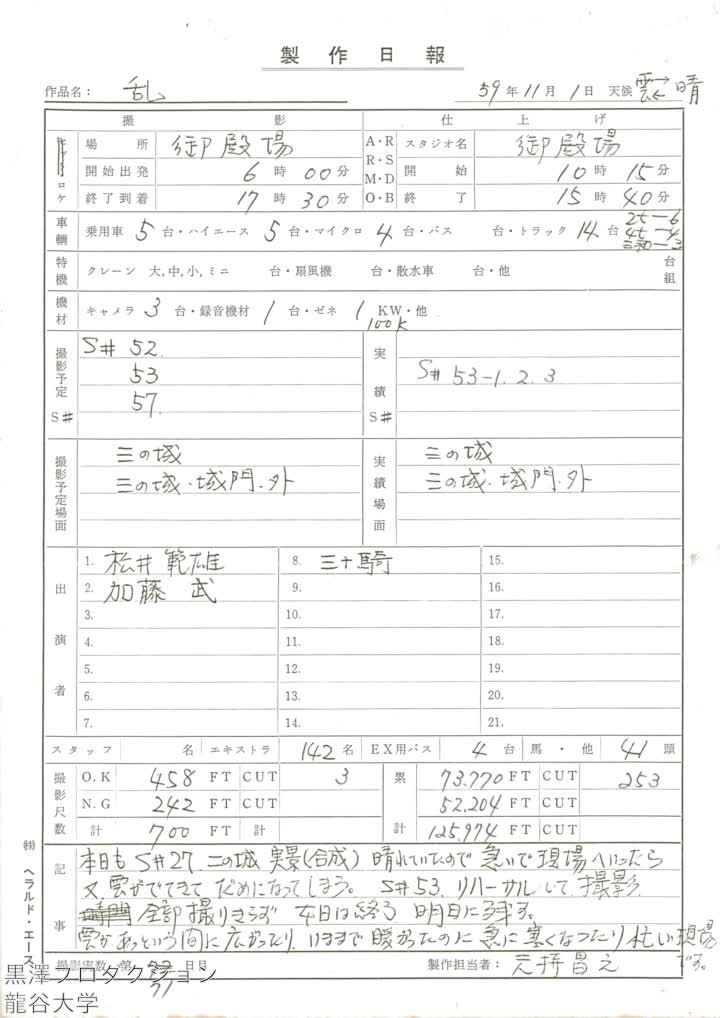 製作日報
作品名： 乱 59年11月1日 天候 曇 晴
撮影 仕上げ
ロケ 場所 御殿場 A・R スタジオ名 御殿場
開始出発 6時00分 R・S M・D 開始 10時15分
終了到着 17時30分 O・B 終了 15時40分
車輌 乗用車 5台・ハイエース 5台・マイクロ 4台・バス 台・トラック 14台 2t－6 4t－4
特機 クレーン 大,中,小,ミニ 台・扇風機 台・散水車 台・他 台組
機材 キャメラ 3台・録音機材 1台・ゼネ 1 100k KW・他
撮影予定 S# 実績 S#
S# 52. S# 53-1. 2. 3
53
57.
撮影予定場面 実績場面
三の城 三の城
三の城・城門・外 三の城・城門・外
出演者
1. 松井範雄 8. 三十騎 15.
2. 加藤 武 9. 16.
3. 10. 17.
4. 11. 18.
5. 12. 19.
6. 13. 20.
7. 14. 21.
スタッフ 名 エキストラ 142名 EX用バス 4台 馬・他 41頭
撮影尺数 O.K 458 FT CUT 3 累計 73,770 FT CUT 253
N.G 242 FT CUT 52,204 FT CUT
計 700 FT 計 125,974 FT CUT
記事
本日も S#27. 二の城 実景(合成) 晴れていたので 急いで現場へいったら
又 雲がでてきて だめになってしまう。 S#53. リハーサルして 撮影
全部 撮りきらず 本日は終り 明日に残す。
雲があっという間に広がったり、いままで暖かったのに急に寒くなったり 忙しい現場です。
撮影実数 第 71 日目 製作担当者：
㈱ヘラルド・エース
黒澤プロダクション
龍谷大学